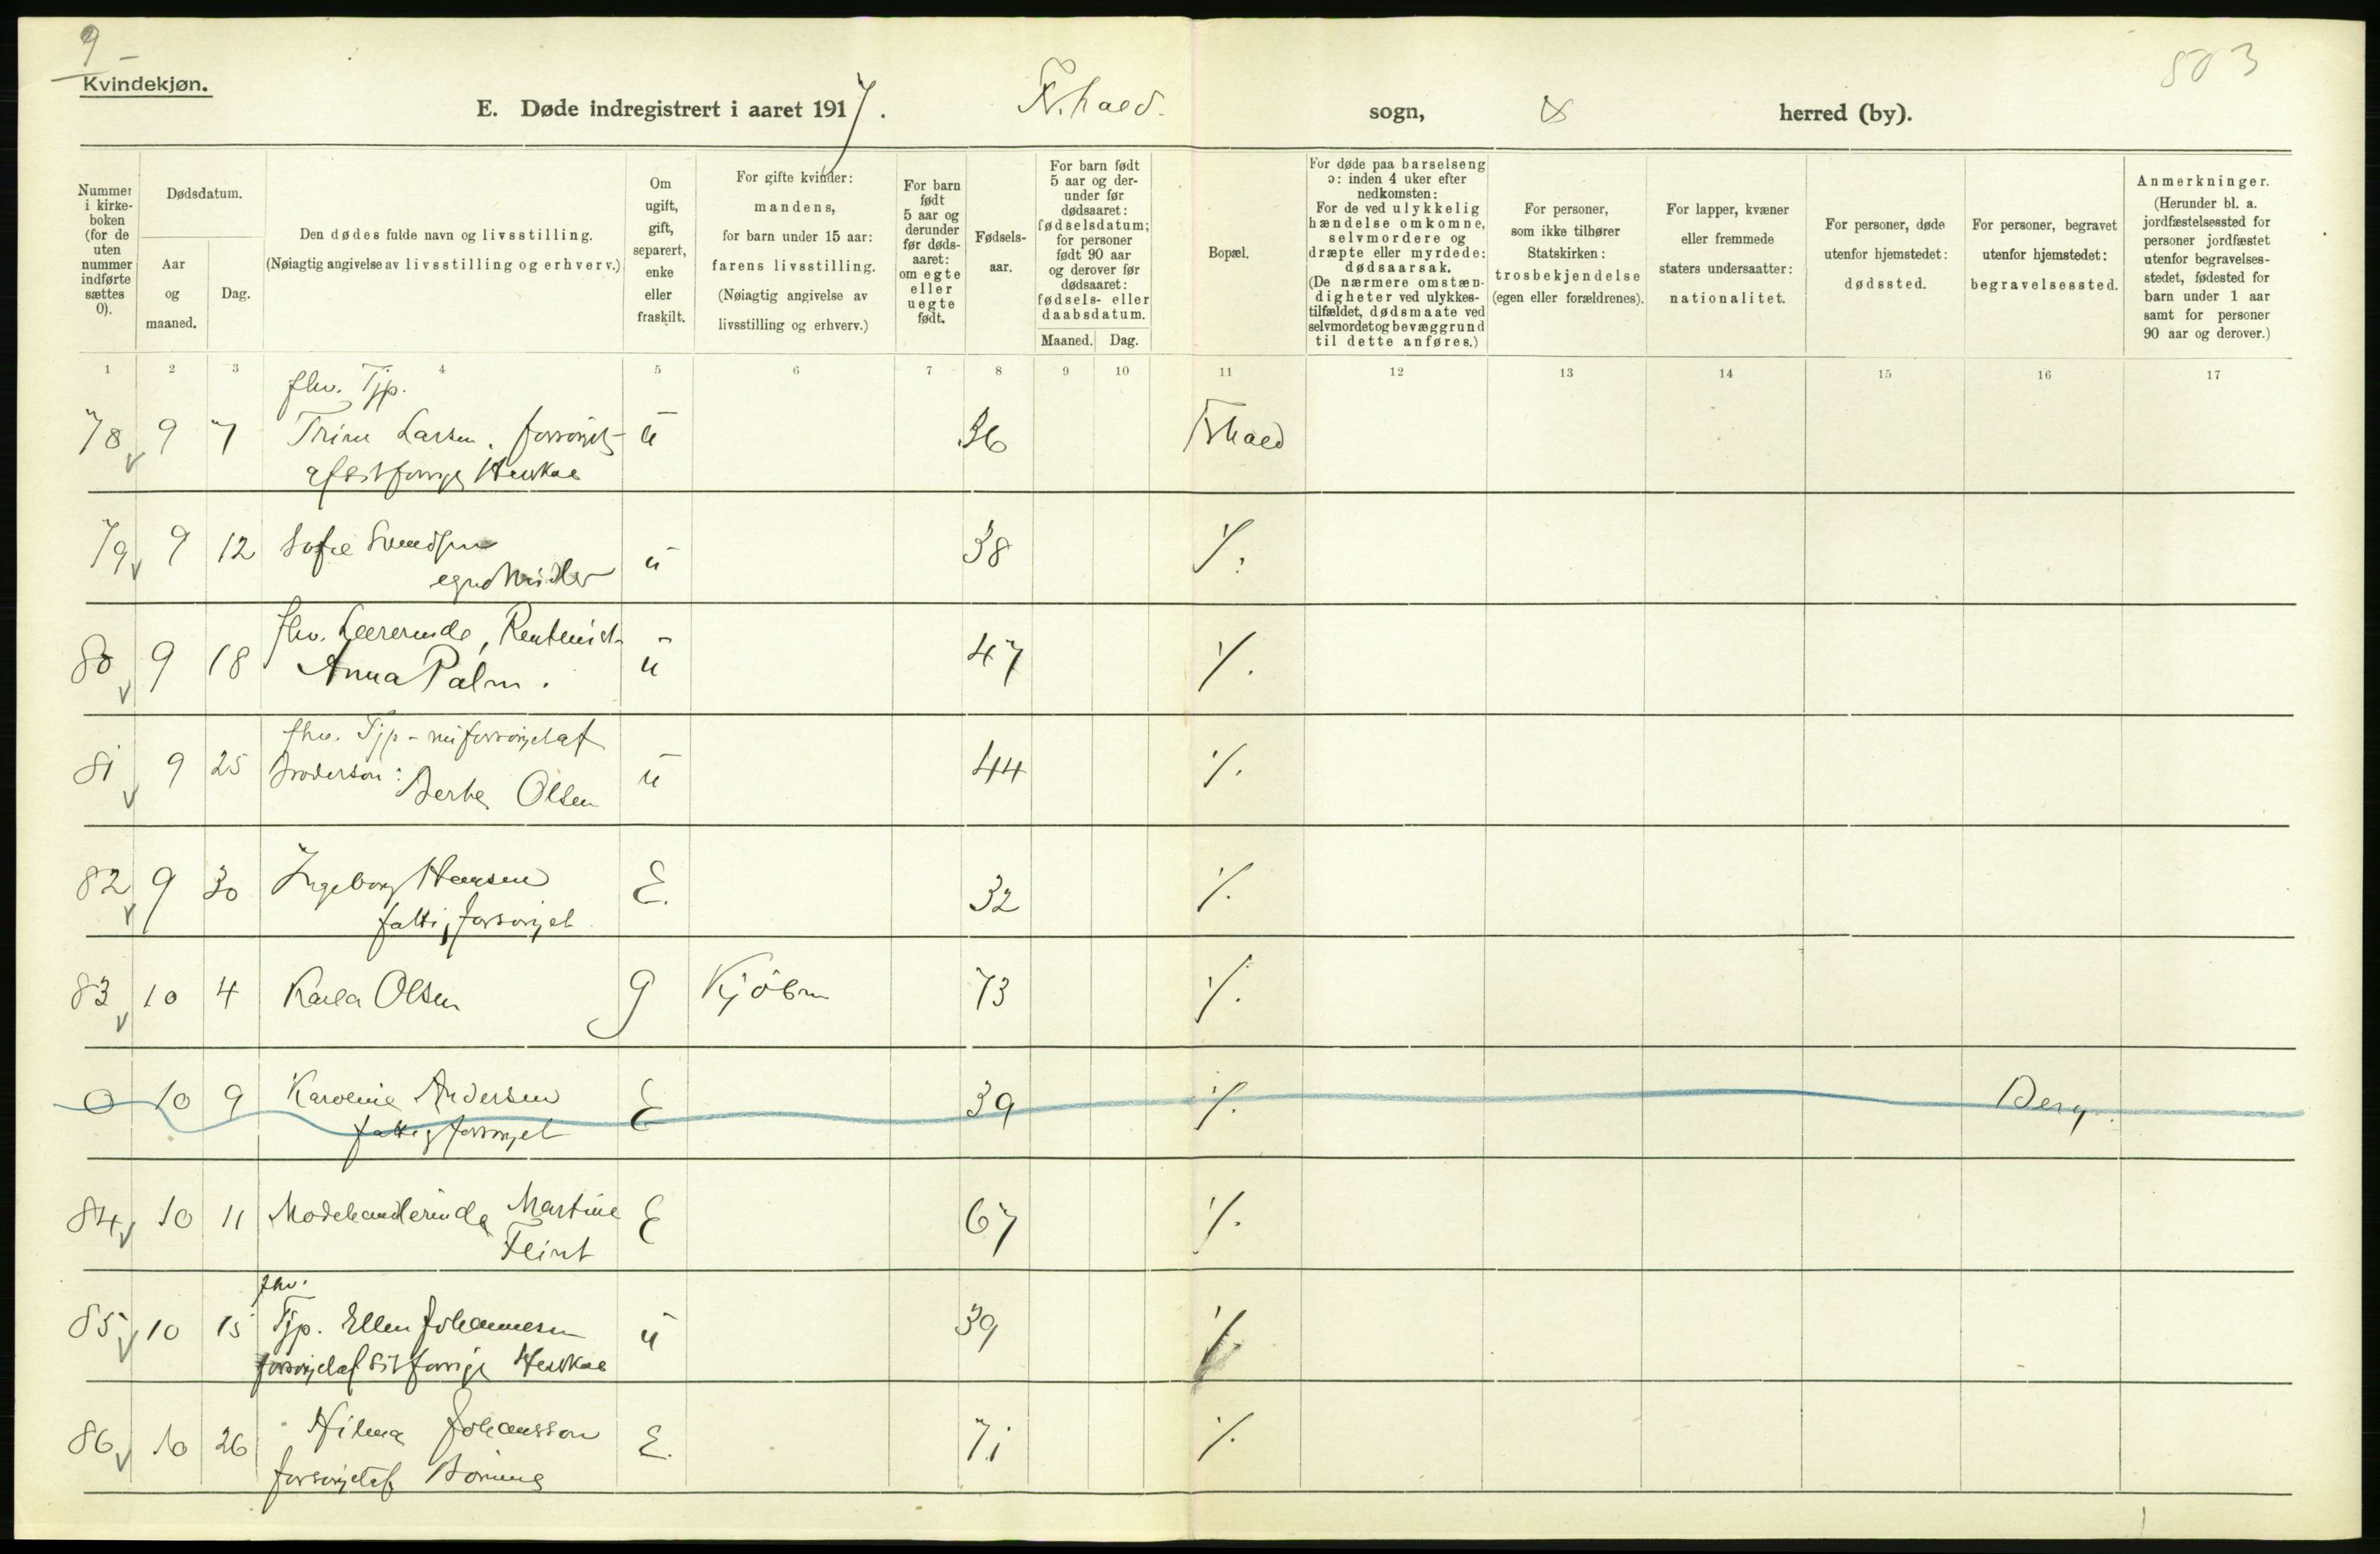 9
Kvindekjøn.
803
E. Døde indregistrert i aaret 1917. Fr.hald. sogn, & herred (by).
Nummer i kirkeboken (for de uten nummer indførte sættes 0).
Dødsdatum.
Aar og maaned.
Dag.
Den dødes fulde navn og livsstilling.
(Nøiagtig angivelse av livsstilling og erhverv.)
Om ugift, gift, separert, enke eller fraskilt.
For gifte kvinder: mandens, for barn under 15 aar: farens livsstilling.
(Nøiagtig angivelse av livsstilling og erhverv.)
For barn født 5 aar og derunder før dødsaaret: om egte eller uegte født.
Fødselsaar.
For barn født 5 aar og derunder før dødsaaret: fødselsdatum; for personer født 90 aar og derover før dødsaaret: fødsels- eller daabsdatum.
Maaned. Dag.
Bopæl.
For døde paa barselseng ɔ: inden 4 uker efter nedkomsten:
For de ved ulykkelig hændelse omkomne, selvmordere og dræpte eller myrdede: dødsaarsak.
(De nærmere omstændigheter ved ulykkestilfældet, dødsmaate ved selvmordet og bevæggrund til dette anføres.)
For personer, som ikke tilhører Statskirken: trosbekjendelse (egen eller forældrenes).
For lapper, kvæner eller fremmede staters undersaatter: nationalitet.
For personer, døde utenfor hjemstedet: dødssted.
For personer, begravet utenfor hjemstedet: begravelsessted.
Anmerkninger.
(Herunder bl. a. jordfæstelsessted for personer jordfæstet utenfor begravelsesstedet, fødested for barn under 1 aar samt for personer 90 aar og derover.)
1 2 3 4 5 6 7 8 9 10 11 12 13 14 15 16 17
fhv. Tjp.
78 9 7 Trine Larsen. forsørget u 36 Frhald
af sit forrige Herskab
79 9 12 Sofie Svendsen u 38 ٪
egne Midler
fhv. Lærerinde, Rentenist
80 9 18 Anna Palm. u 47 ٪
fhv. Tjp - nu forsørget af
81 9 25 Broderson: Berthe Olsen u 44 ٪
82 9 30 Ingeborg Hansen E. 32 ٪
fattigforsørget
83 10 4 Karla Olsen g Kjøbm 73 ٪
0 10 9 Karoline Andersen E 39 ٪ Berg.
fattigforsørget
84 10 11 Modehandlerinde Martine E 67 ٪
Flint
fhv.
85 10 15 Tjp. Ellen Johannesen u 39 ٪
forsørget af sit forrige Herskab
86 10 26 Hilma Johansson E. 71 ٪
forsørget af Børnene